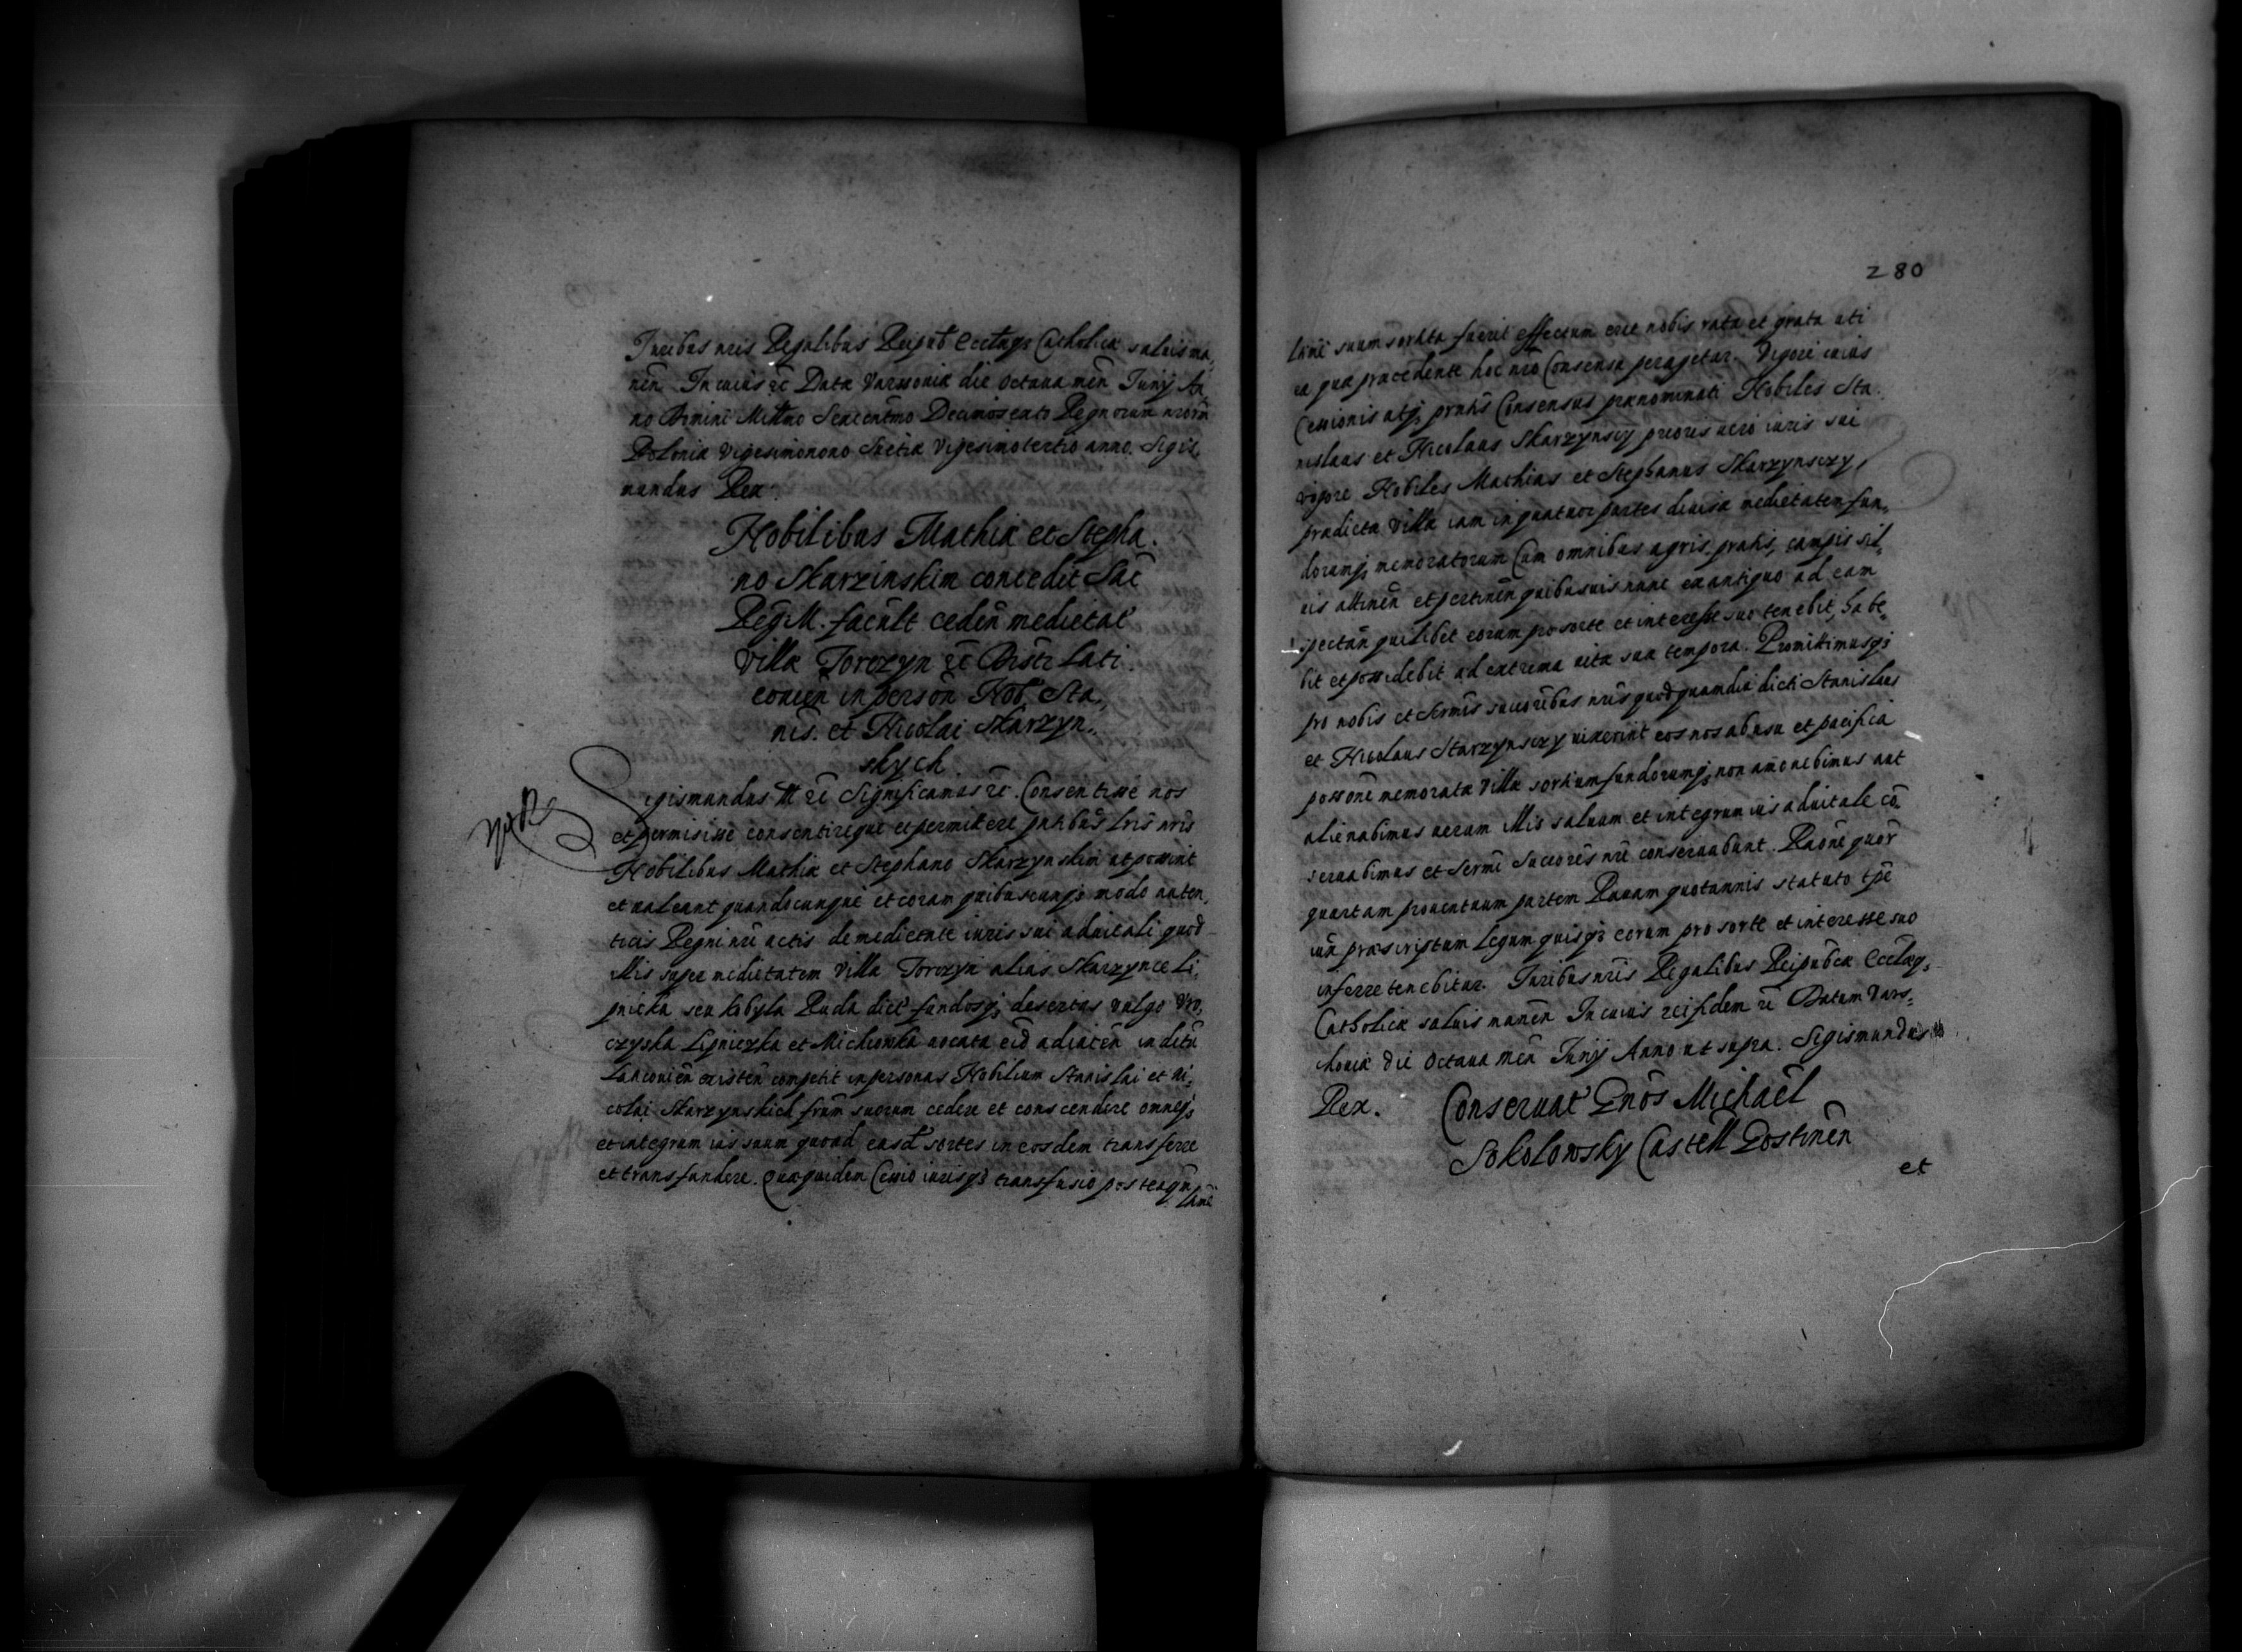 Iuribus nris Regalibus Reipub Ecclaeq; Catholicæ saluis ma,
nen. In cuius rē Datæ Varsouiæ die octaua men Iunij An,
no Domini Millmo Sexcentmo Decimosexto Regnorum nrorum
Poloniæ vigesimonono Suetiæ vigesimotertio anno. Sigis,
mundus Rex.
Nobilibus Mathiæ et Stepha.
no Skarzinskim concedit Sac
Reg M. facult cedēn medietat
Villæ Torczyn rē Distr Lati.
couien in person Nob. Sta,
nis. et Nicolai Skarzyn,
skych.
Sigismundus III rē Significamus rē. Consentisse nos
et permisisse consentireque et permittere pntibus Lris nris
Nobilibus Mathiæ et Stephano Skarzynskim ut possint
et ualeant quandocunque et coram quibuscunq; modo auten,
ticis Regni nri actis de medietate iuris sui aduitali quod
illis super medietatem Villæ Torczyn alias Skarzynce Li,
pnicka seu Kobyla Ruda dict fundosq; desertos vulgo Wo,
czyska Lipniczka et Michowka uocata eid adiacen in distr
Latiouien existen competit in personas Nobilium Stanislai et Ni,
colai Skarzynskich frum suorum cedere et conscendere omneq;
et integrum ius suum quoad easd sortes in eosdem transferre
et transfundere. Quæquidem Cessio iurisq; transfusio posteaqu
Lami
280
Lami suum sortita fuerit effectum erit nobis rata et grata uti
ea quæ præcedente hoc nro Consensu peragetur. Vigore cuius
Cessionis atq; pntis Consensus prænominati Nobiles Sta.
nislaus et Nicolaus Skarzynscy prioris uero iuris sui
vigore Nobiles Mathias et Stephanus Skarzynsczy,
prædictæ Villæ iam in quatuor partes diuisæ medietatem fun,
dorumq; memoratorum Cum omnibus agris, pratis, campis sil,
uis attinen et pertinen quibusuis nunc ex antiquo ad eam
spectan quilibet eorum pro sorte et interesse suo tenebit, habe,
bit et possidebit ad extrema uitæ suæ tempora. Promittimusq;
pro nobis et Sermis succoribus nris quod quamdiu dicti Stanislaus
et Nicolaus Skarzynsczy uixerint eos nos ab usu et pacifica
possone memoratæ Villæ sortium fundorumq; non amouebimus aut
alienabimus uerum illis saluum et integrum ius aduitale co,
seruabimus et Sermi Succores nri conseruabunt. Raone quor
quartam prouentuum partem Rauam quotannis statuto tpe
iuxa præscriptum Legum quisq; eorum pro sorte et interesse suo
inferre tenebitur. Iuribus nris Regalibus Reipubcæ Ecclæq;
Catholicæ saluis manen In cuius rei fidem rē Datum Vars,
houiæ die octaua men Iunij Anno ut supra. Sigismundus
Rex. Conseruat Gnos Michaël
Sokolowsky Castell Gostinen
et